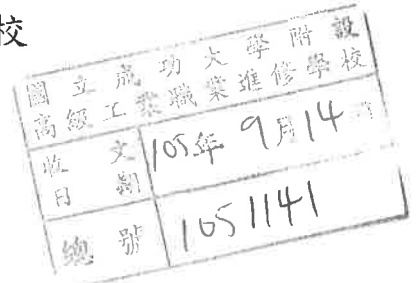 校
國立成功大學附設
高級工業職業進修學校
收文
日期
105年9月14日
總號
1051141